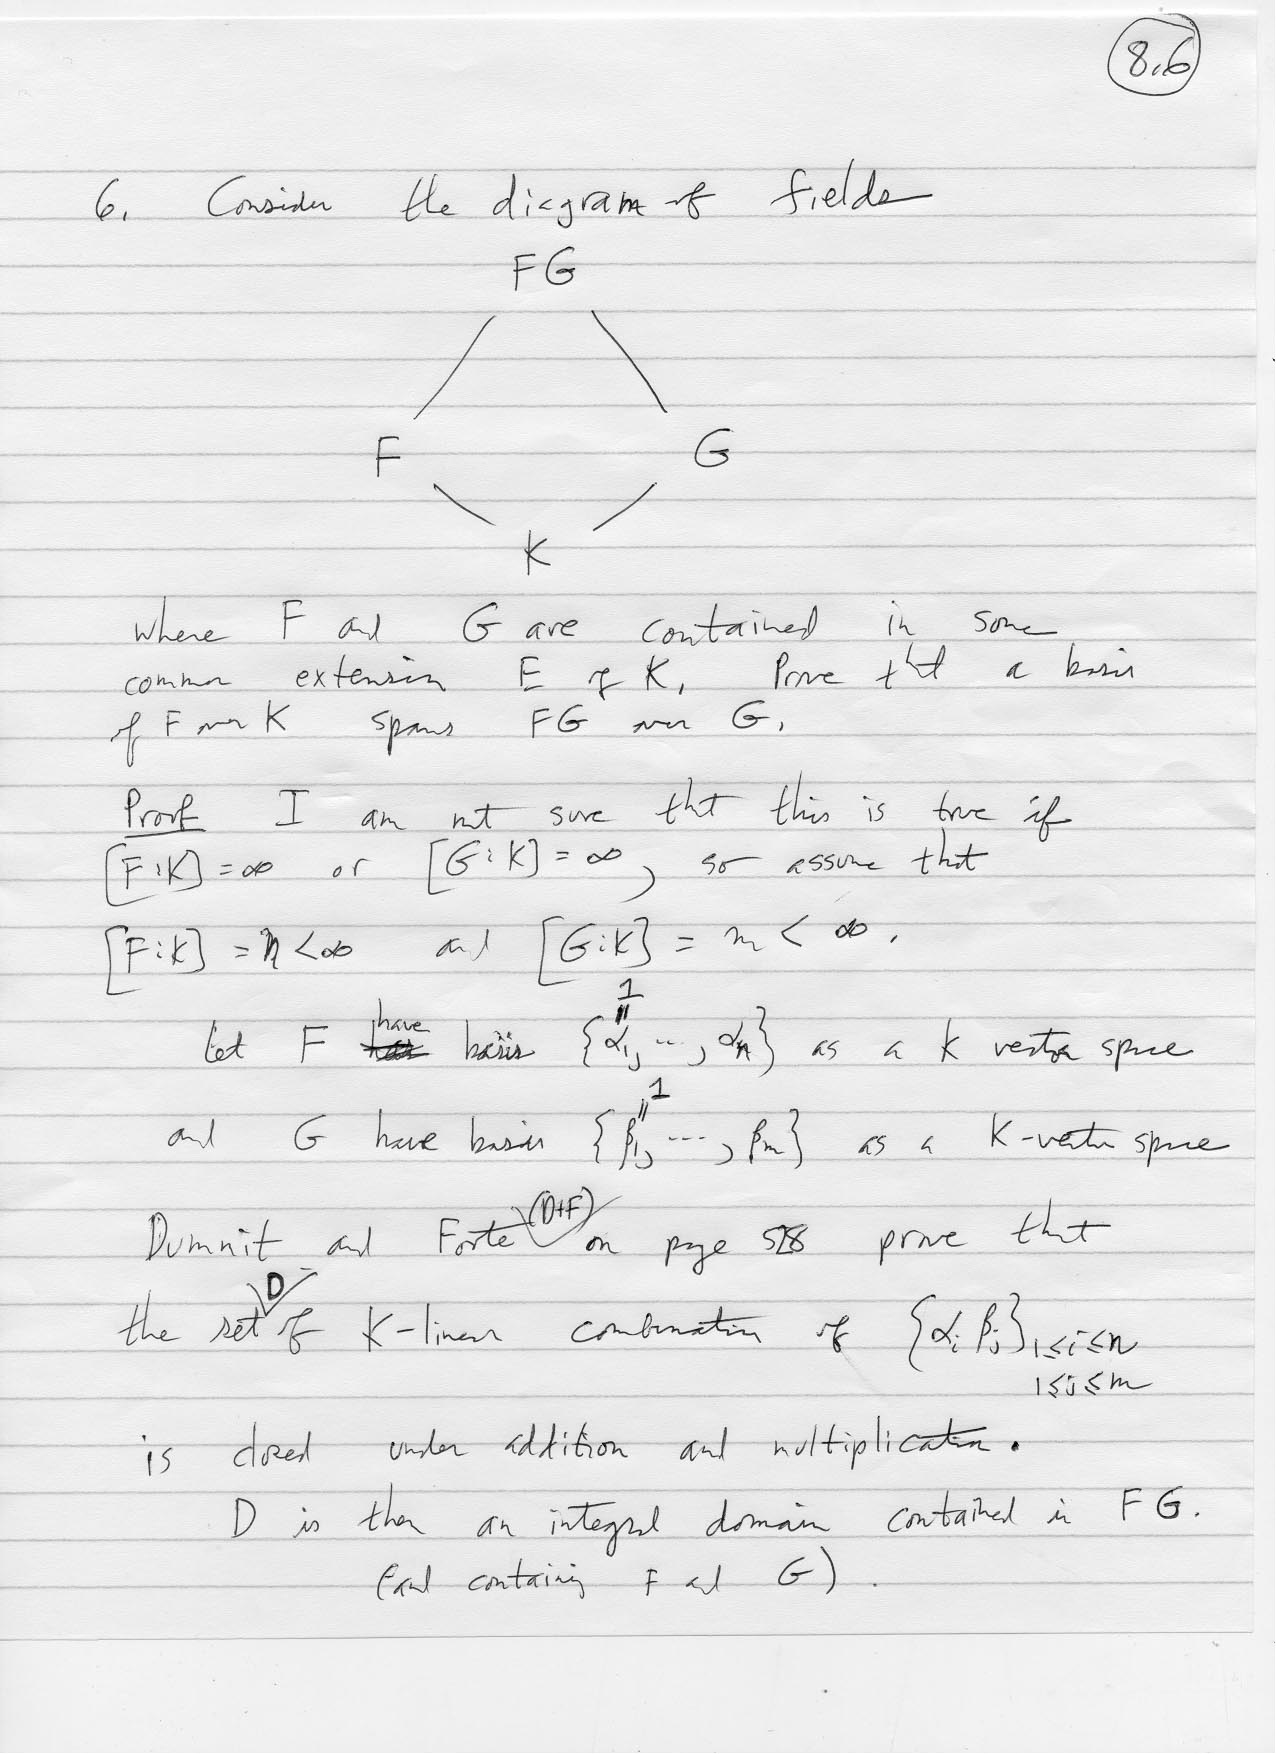 8.6
6. Consider the diagram of fields
FG
F G
K
where F and G are contained in some
common extension E of K. Prove that a basis
of F over K spans FG over G.
Proof I am not sure that this is true if
[F:K] = ∞ or [G:K] = ∞, so assume that
[F:K] = n < ∞ and [G:K] = m < ∞.
1
"
Let F have basis {α₁, ..., αₙ} as a K vector space
1
"
and G have basis {β₁, ..., βₘ} as a K-vector space
Dummit and Foote (D+F) on page 528 prove that
the set D of K-linear combination of {αᵢ βⱼ} 1≤i≤n
1≤j≤m
is closed under addition and multiplication.
D is then an integral domain contained in FG.
(and containing F and G).